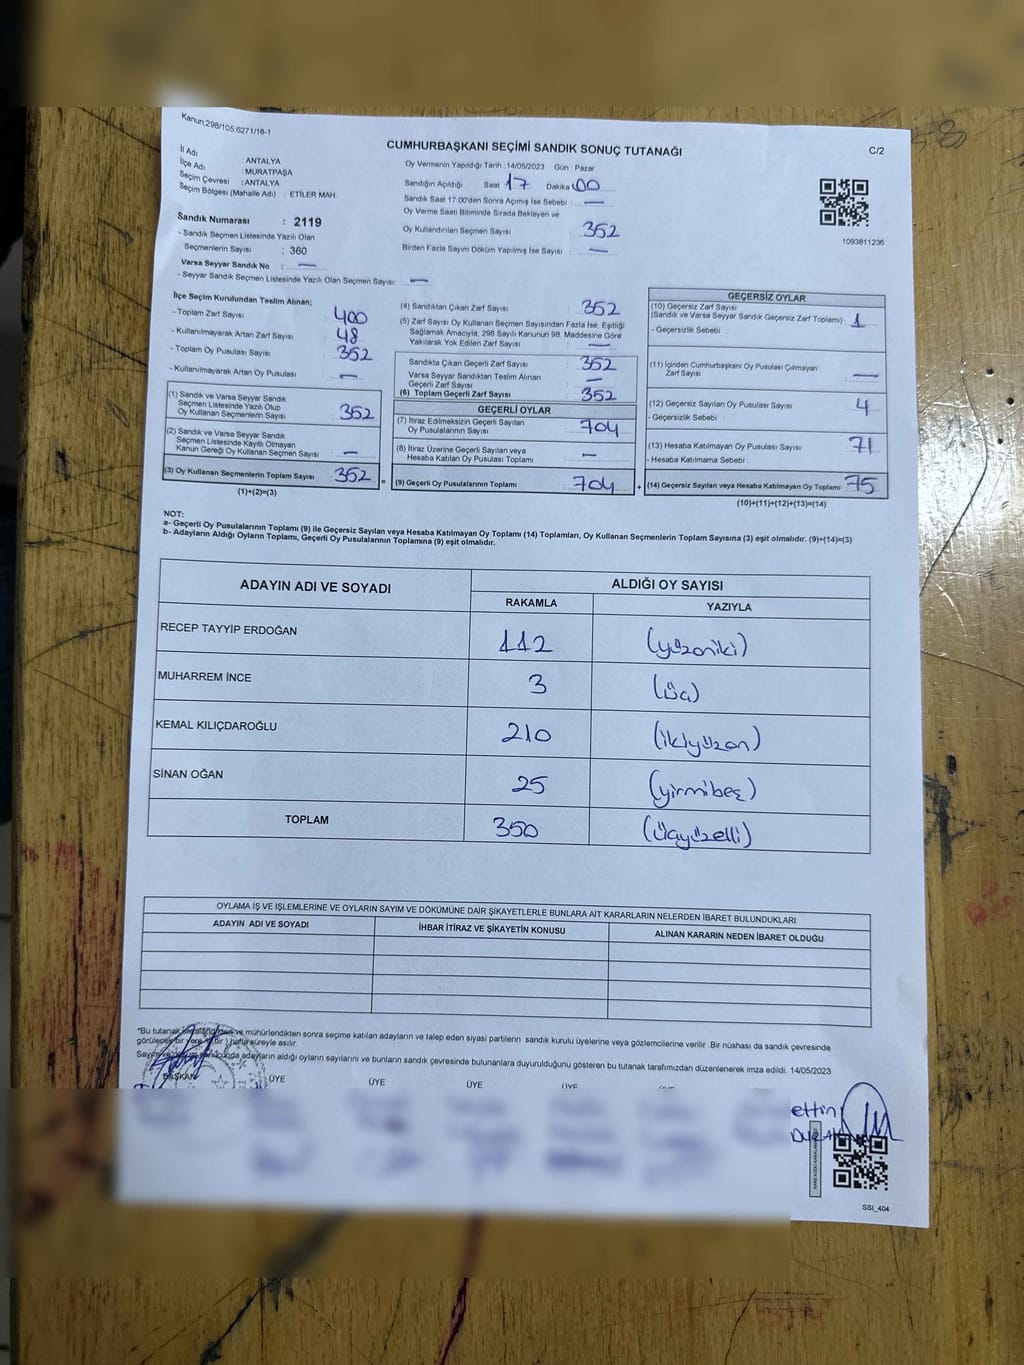 Kanun;298/105,6271/16-1
CUMHURBAŞKANI SEÇİMİ SANDIK SONUÇ TUTANAĞI
C/2
İl Adı : ANTALYA
İlçe Adı : MURATPAŞA
Seçim Çevresi : ANTALYA
Seçim Bölgesi (Mahalle Adı) : ETİLER MAH.
Oy Vermenin Yapıldığı Tarih :14/05/2023 Gün : Pazar
Sandığın Açıldığı Saat 17 Dakika 00
Sandık Saat 17:00'den Sonra Açımış İse Sebebi : —
Oy Verme Saati Bitiminde Sırada Bekleyen ve
Oy Kullandırılan Seçmen Sayısı : 352
Birden Fazla Sayım Döküm Yapılmış İse Sayısı : —
1093811236
Sandık Numarası : 2119
- Sandık Seçmen Listesinde Yazılı Olan
Seçmenlerin Sayısı : 360
Varsa Seyyar Sandık No : —
- Seyyar Sandık Seçmen Listesinde Yazılı Olan Seçmen Sayısı: —
İlçe Seçim Kurulundan Teslim Alınan;
- Toplam Zarf Sayısı : 400
- Kullanılmayarak Artan Zarf Sayısı : 48
- Toplam Oy Pusulası Sayısı : 352
- Kullanılmayarak Artan Oy Pusulası : —
(1) Sandık ve Varsa Seyyar Sandık
Seçmen Listesinde Yazılı Olup
Oy Kullanan Seçmenlerin Sayısı : 352
(2) Sandık ve Varsa Seyyar Sandık
Seçmen Listesinde Kayıtlı Olmayan
Kanun Gereği Oy Kullanan Seçmen Sayısı : —
(3) Oy Kullanan Seçmenlerin Toplam Sayısı : 352
(1)+(2)=(3)
=
(4) Sandıktan Çıkan Zarf Sayısı : 352
(5) Zarf Sayısı Oy Kullanan Seçmen Sayısından Fazla İse, Eşitliği
Sağlamak Amacıyla, 298 Sayılı Kanunun 98. Maddesine Göre
Yakılarak Yok Edilen Zarf Sayısı : —
Sandıkta Çıkan Geçerli Zarf Sayısı : 352
Varsa Seyyar Sandıktan Teslim Alınan
Geçerli Zarf Sayısı : —
(6) Toplam Geçerli Zarf Sayısı : 352
GEÇERLİ OYLAR
(7) İtiraz Edilmeksizin Geçerli Sayılan
Oy Pusulalarının Sayısı : 704
(8) İtiraz Üzerine Geçerli Sayılan veya
Hesaba Katılan Oy Pusulası Toplamı : —
(9) Geçerli Oy Pusulalarının Toplamı : 704
+
GEÇERSİZ OYLAR
(10) Geçersiz Zarf Sayısı
(Sandık ve Varsa Seyyar Sandık Geçersiz Zarf Toplamı) : 1
- Geçersizlik Sebebi :
(11) İçinden Cumhurbaşkanı Oy Pusulası Çıkmayan
Zarf Sayısı : —
(12) Geçersiz Sayılan Oy Pusulası Sayısı : 4
- Geçersizlik Sebebi :
(13) Hesaba Katılmayan Oy Pusulası Sayısı : 71
- Hesaba Katılmama Sebebi :
(14) Geçersiz Sayılan veya Hesaba Katılmayan Oy Toplamı : 75
(10)+(11)+(12)+(13)=(14)
NOT:
a- Geçerli Oy Pusulalarının Toplamı (9) ile Geçersiz Sayılan veya Hesaba Katılmayan Oy Toplamı (14) Toplamları, Oy Kullanan Seçmenlerin Toplam Sayısına (3) eşit olmalıdır. (9)+(14)=(3)
b- Adayların Aldığı Oyların Toplamı, Geçerli Oy Pusulalarının Toplamına (9) eşit olmalıdır.
ADAYIN ADI VE SOYADI
ALDIĞI OY SAYISI
RAKAMLA YAZIYLA
RECEP TAYYİP ERDOĞAN 112 (yüzoniki)
MUHARREM İNCE 3 (üç)
KEMAL KILIÇDAROĞLU 210 (ikiyüzon)
SİNAN OĞAN 25 (yirmibeş)
TOPLAM 350 (üçyüzelli)
OYLAMA İŞ VE İŞLEMLERİNE VE OYLARIN SAYIM VE DÖKÜMÜNE DAİR ŞİKAYETLERLE BUNLARA AİT KARARLARIN NELERDEN İBARET BULUNDUKLARI
ADAYIN ADI VE SOYADI İHBAR İTİRAZ VE ŞİKAYETİN KONUSU ALINAN KARARIN NEDEN İBARET OLDUĞU
*Bu tutanak ve mühürlendikten sonra seçime katılan adayların ve talep eden siyasi partilerin sandık kurulu üyelerine veya gözlemcilerine verilir. Bir nüshası da sandık çevresinde
görülecek bir yere süreyle asılır.
adayların aldığı oyların sayılarını ve bunların sandık çevresinde bulunanlara duyurulduğunu gösteren bu tutanak tarafımızdan düzenlenerek imza edildi. 14/05/2023
BAŞKAN ÜYE ÜYE ÜYE ÜYE
ettin
SSI_404